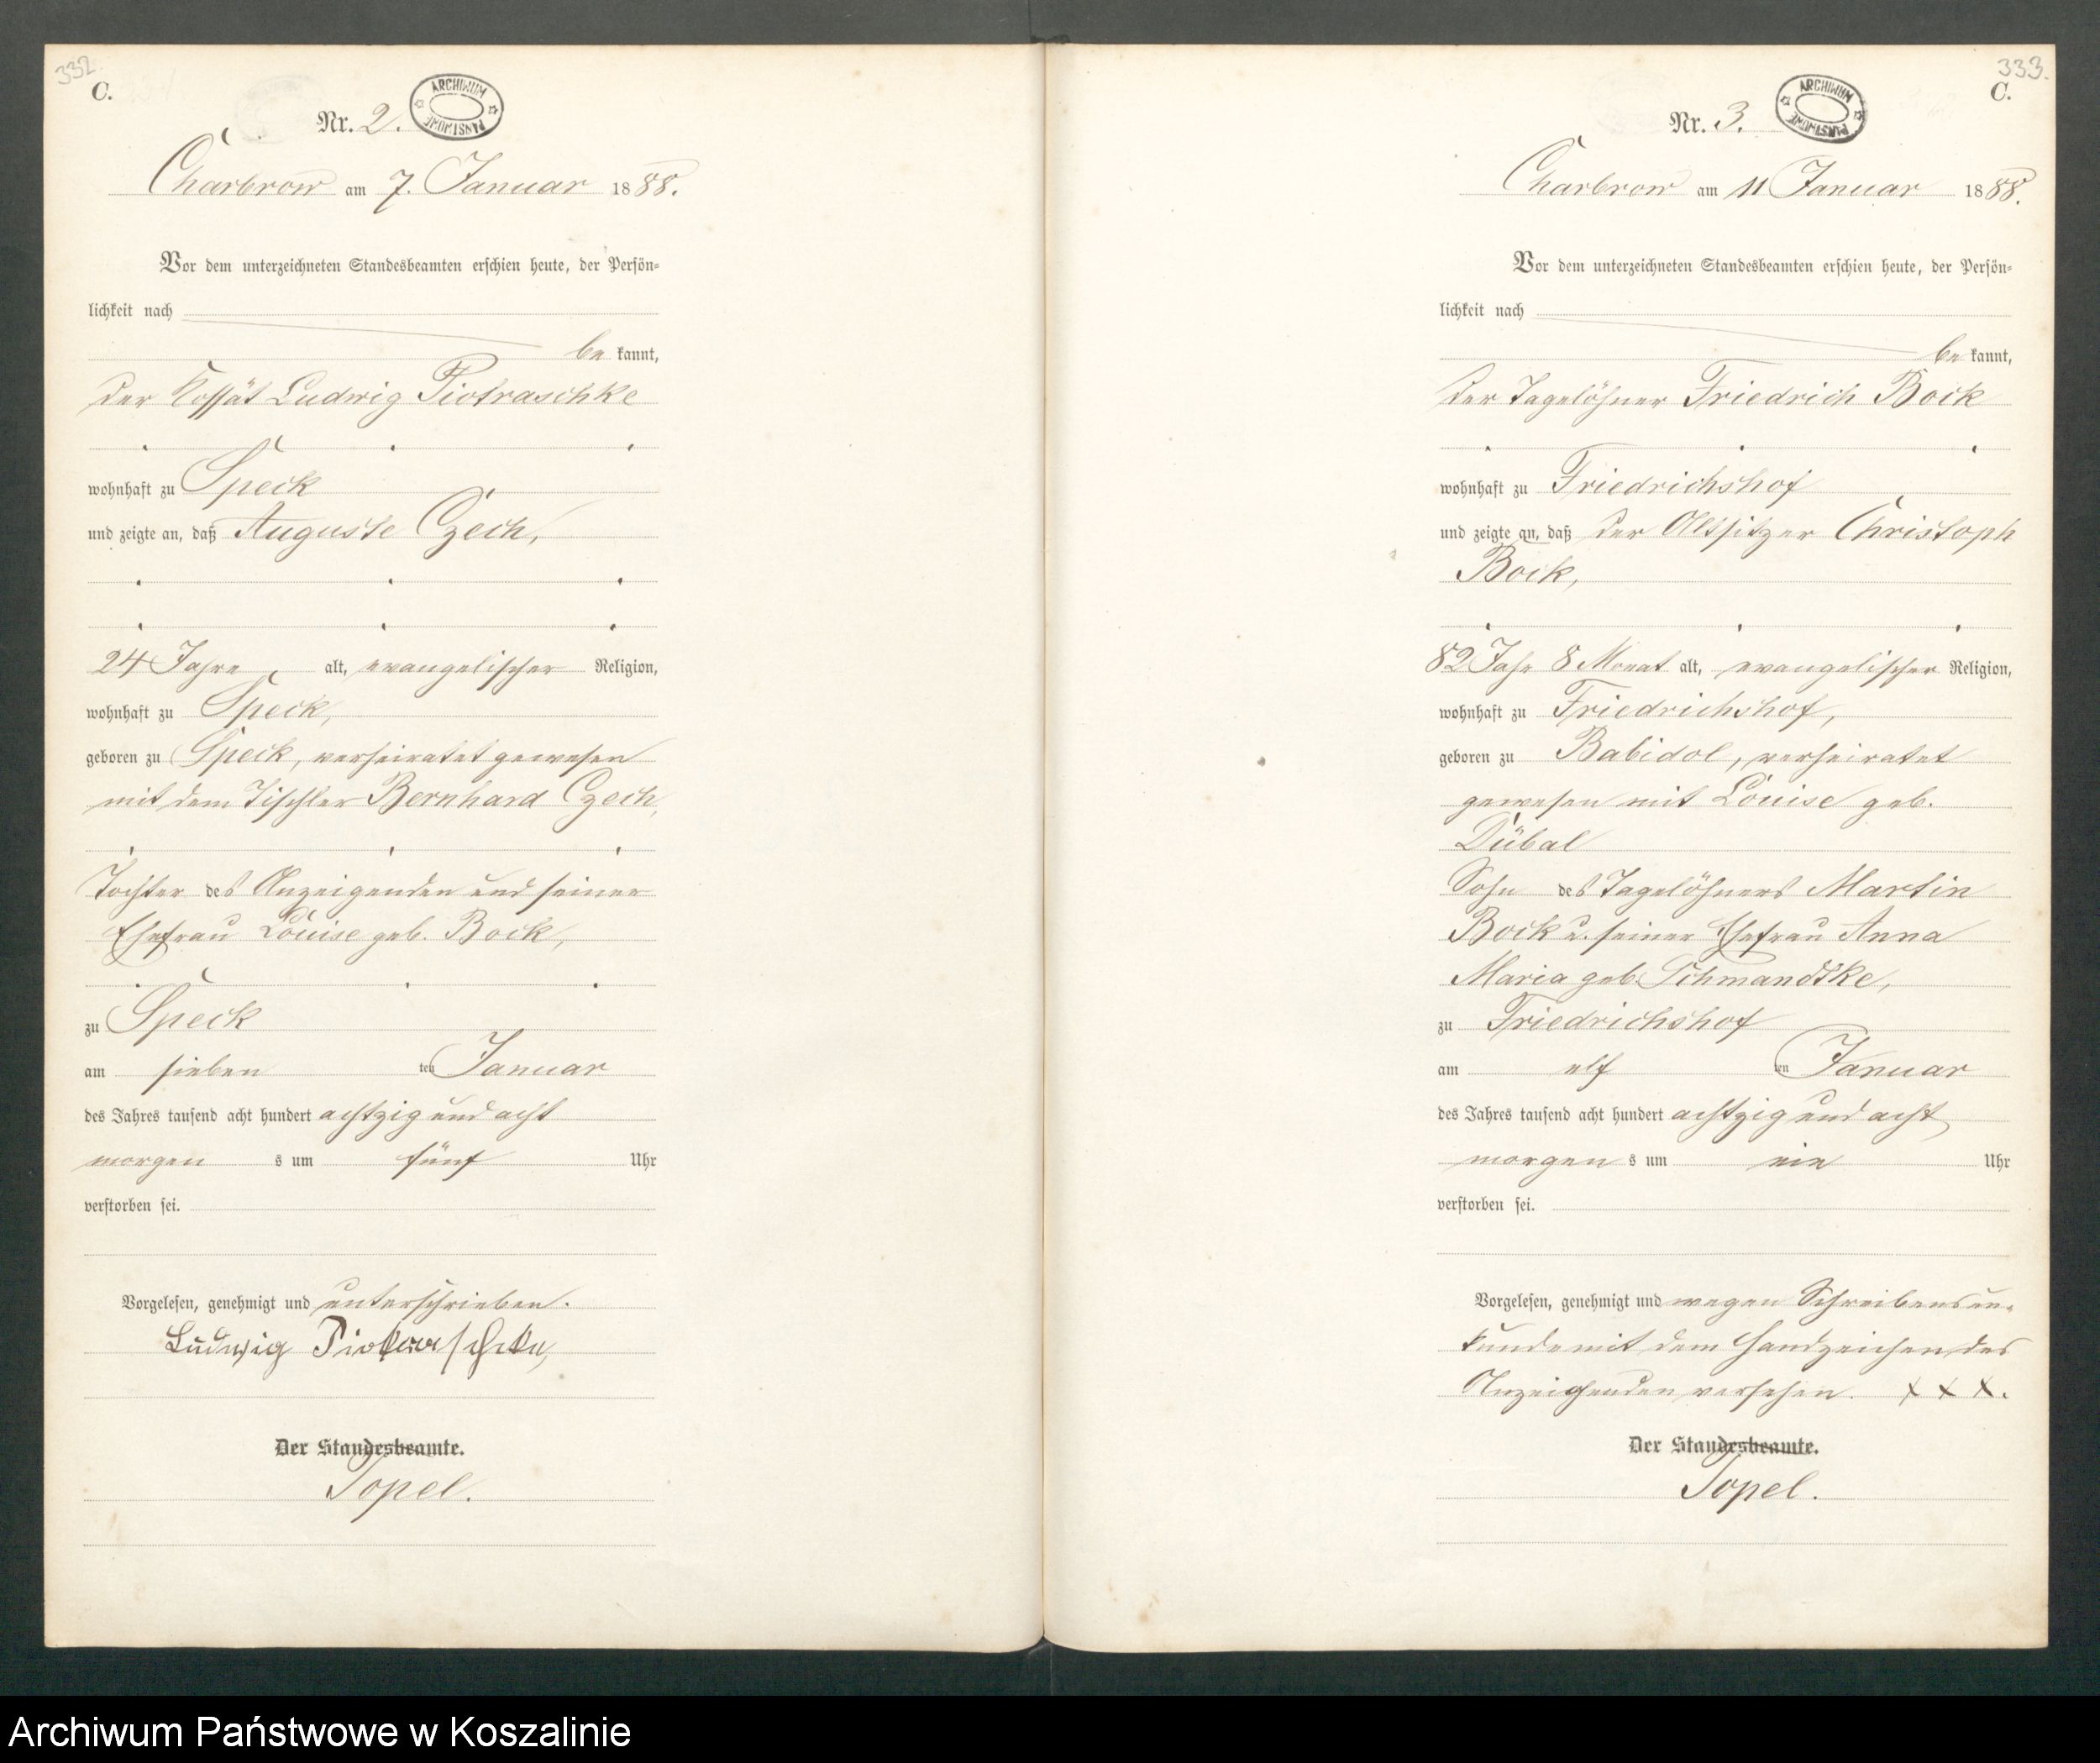 332.
C.
Nr. 2.
ARCHIWUM PAŃSTWOWE
Charbrow am 7. Januar 1888.
Vor dem unterzeichneten Standesbeamten erschien heute, der Persön-
lichkeit nach
be kannt,
der Kossät Ludwig Piotraschke
wohnhaft zu Speck
und zeigte an, daß Auguste Czech,
24 Jahre, alt, evangelischer Religion,
wohnhaft zu Speck,
geboren zu Speck, verheiratet gewesen
mit dem Tischler Bernhard Czech,
Tochter des Anzeigenden und seiner
Ehefrau Louise geb. Bock,
zu Speck
am sieben ten Januar
des Jahres tausend acht hundert achtzig und acht
morgen s um fünf Uhr
verstorben sei.
Vorgelesen, genehmigt und unterschrieben.
Ludwig Piotraschke,
Der Standesbeamte.
Topel.
333.
C.
Nr. 3.
ARCHIWUM PAŃSTWOWE
Charbrow am 11 Januar 1888.
Vor dem unterzeichneten Standesbeamten erschien heute, der Persön-
lichkeit nach
be kannt,
der Tagelöhner Friedrich Bock
wohnhaft zu Friedrichshof
und zeigte an, daß der Altsitzer Christoph
Bock,
82 Jahr 8 Monat alt, evangelischer Religion,
wohnhaft zu Friedrichshof,
geboren zu Babidol, verheiratet
gewesen mit Louise geb.
Dübal
Sohn des Tagelöhners Martin
Bock u. seiner Ehefrau Anna
Maria geb. Schmandtke,
zu Friedrichshof
am elf ten Januar
des Jahres tausend acht hundert achtzig und acht
morgen s um ein Uhr
verstorben sei.
Vorgelesen, genehmigt und wegen Schreibensun-
kunde mit dem Handzeichen des
Anzeigenden versehen. X X X.
Der Standesbeamte.
Topel.
Archiwum Państwowe w Koszalinie